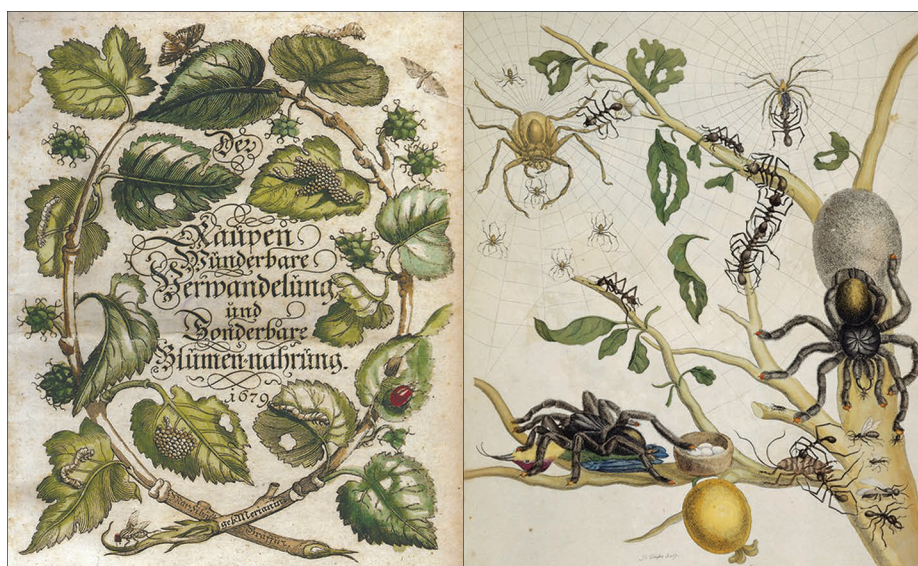 Der
Raupen
Wunderbare
Verwandelung,
und
Sonderbare
Blumen-nahrung.
1679